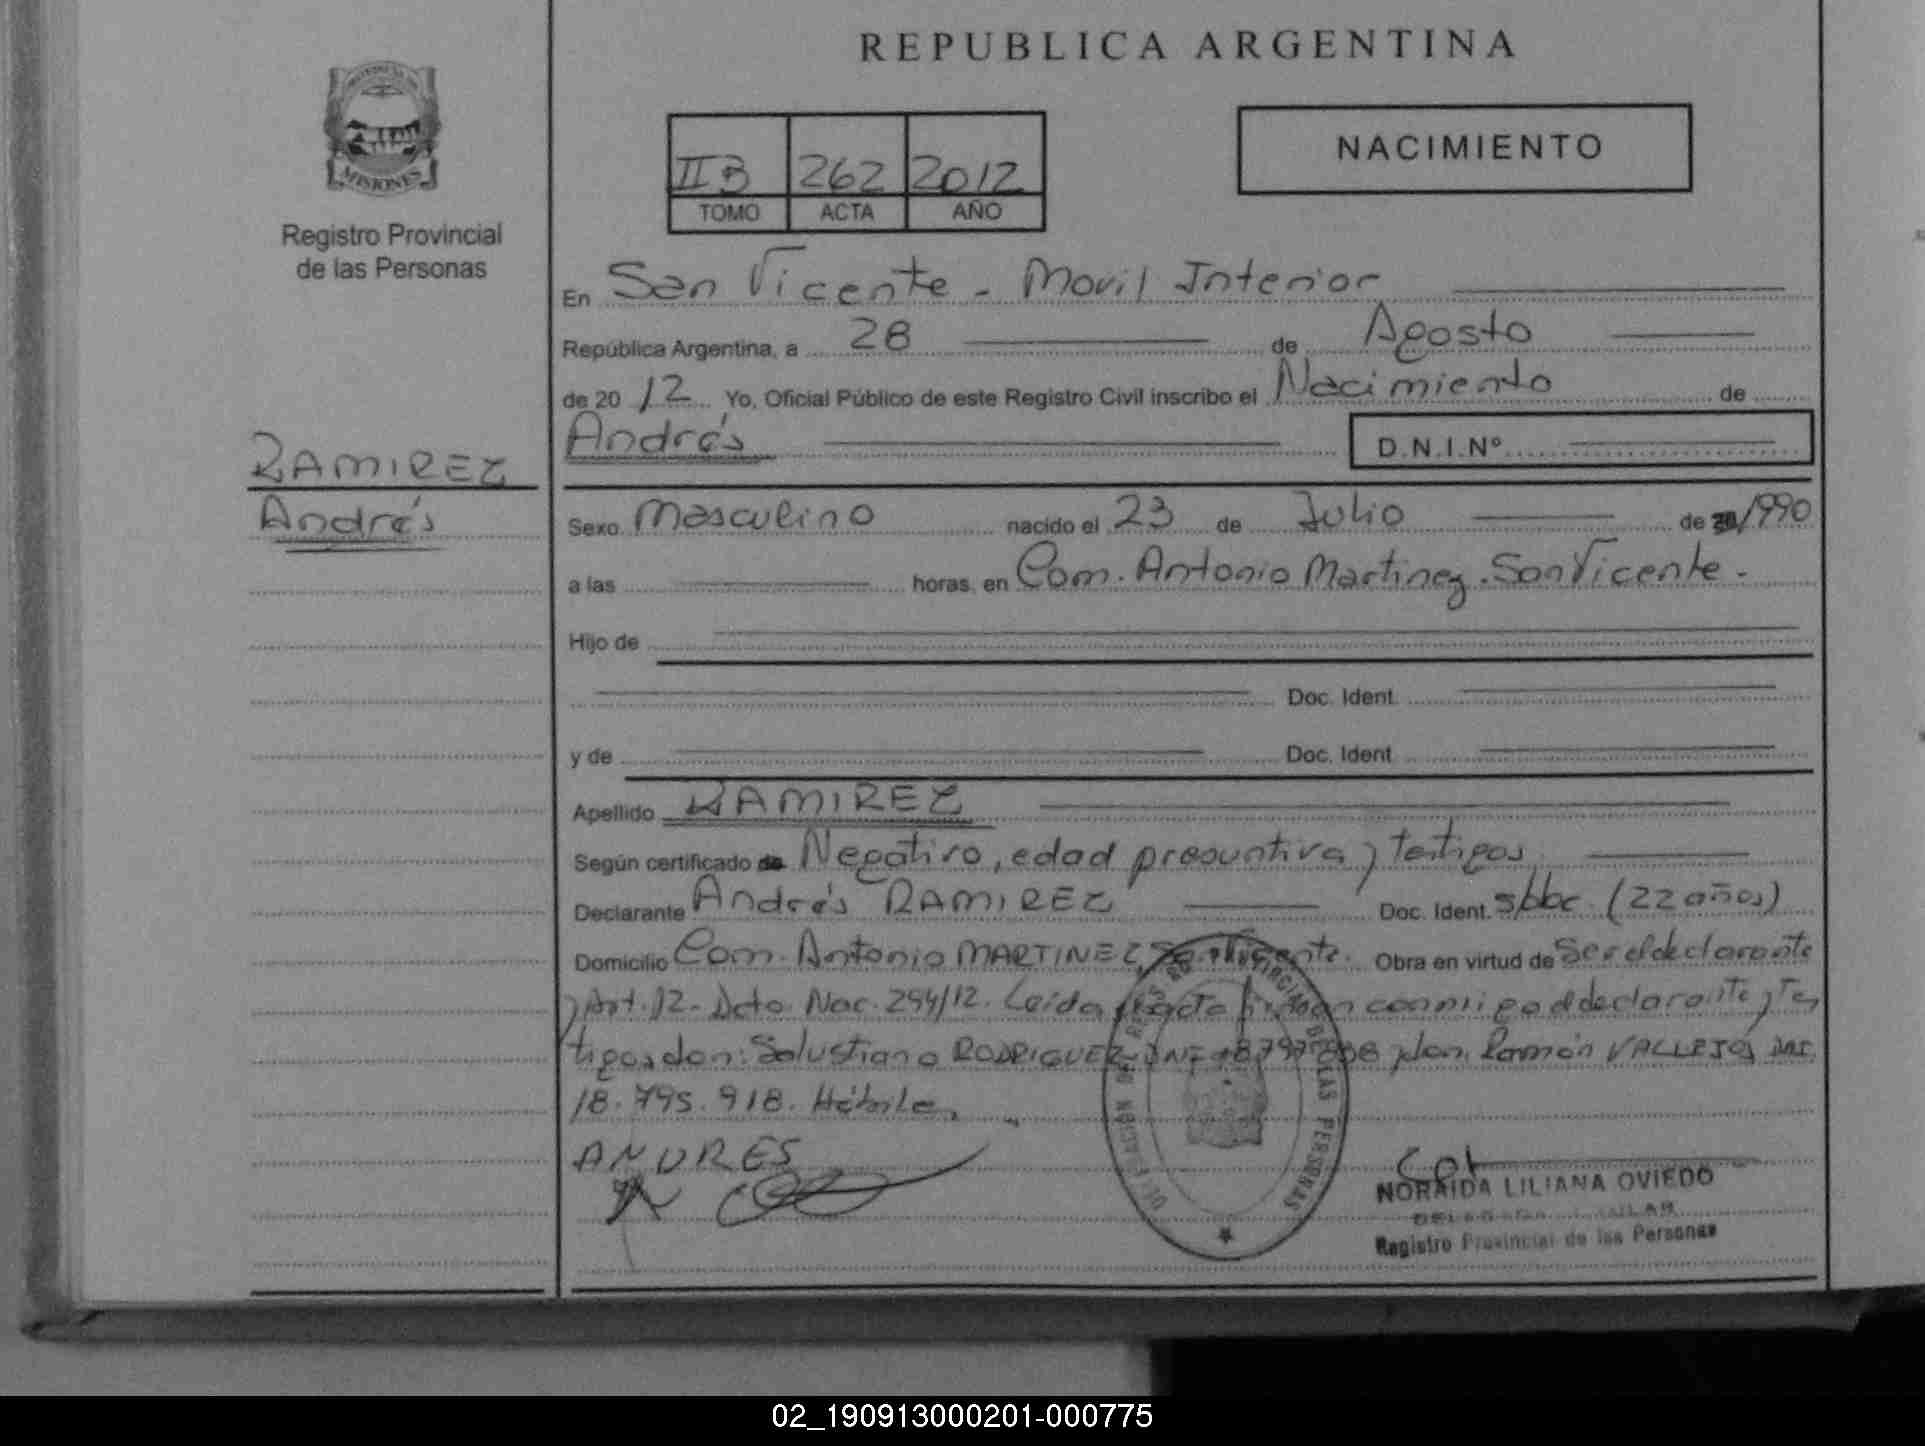 REPUBLICA ARGENTINA
PROVINCIA DE
MISIONES
Registro Provincial
de las Personas
II B 262 2012
TOMO ACTA AÑO
NACIMIENTO
En San Vicente - Movil Interior
República Argentina, a 28 de Agosto
de 2012 Yo, Oficial Público de este Registro Civil inscribo el Nacimiento de
Andrés D.N.I.Nº
RAMIREZ
Andrés
Sexo Masculino nacido el 23 de Julio de 1990
a las horas, en Com. Antonio Martinez. San Vicente.
Hijo de
Doc. Ident.
y de Doc. Ident
Apellido RAMIREZ
Según certificado de Negativo, edad presuntiva y testigos
Declarante Andrés RAMIREZ Doc. Ident. (22 años)
Domicilio Com. Antonio MARTINEZ, San Vicente. Obra en virtud de Ser el declarante
y Art. 12- Dcto. Nac. 294/12. Leida el acta firman conmigo el declarante y tes
tigos don: Salustiano RODRIGUEZ DNI y don, Ramón VALLEJOS DNI
18.795.918. Hábiles.
ANDRES
NORAIDA LILIANA OVIEDO
Registro Provincial de las Personas
REGISTRO PROVINCIAL DE LAS PERSONAS
02_190913000201-000775